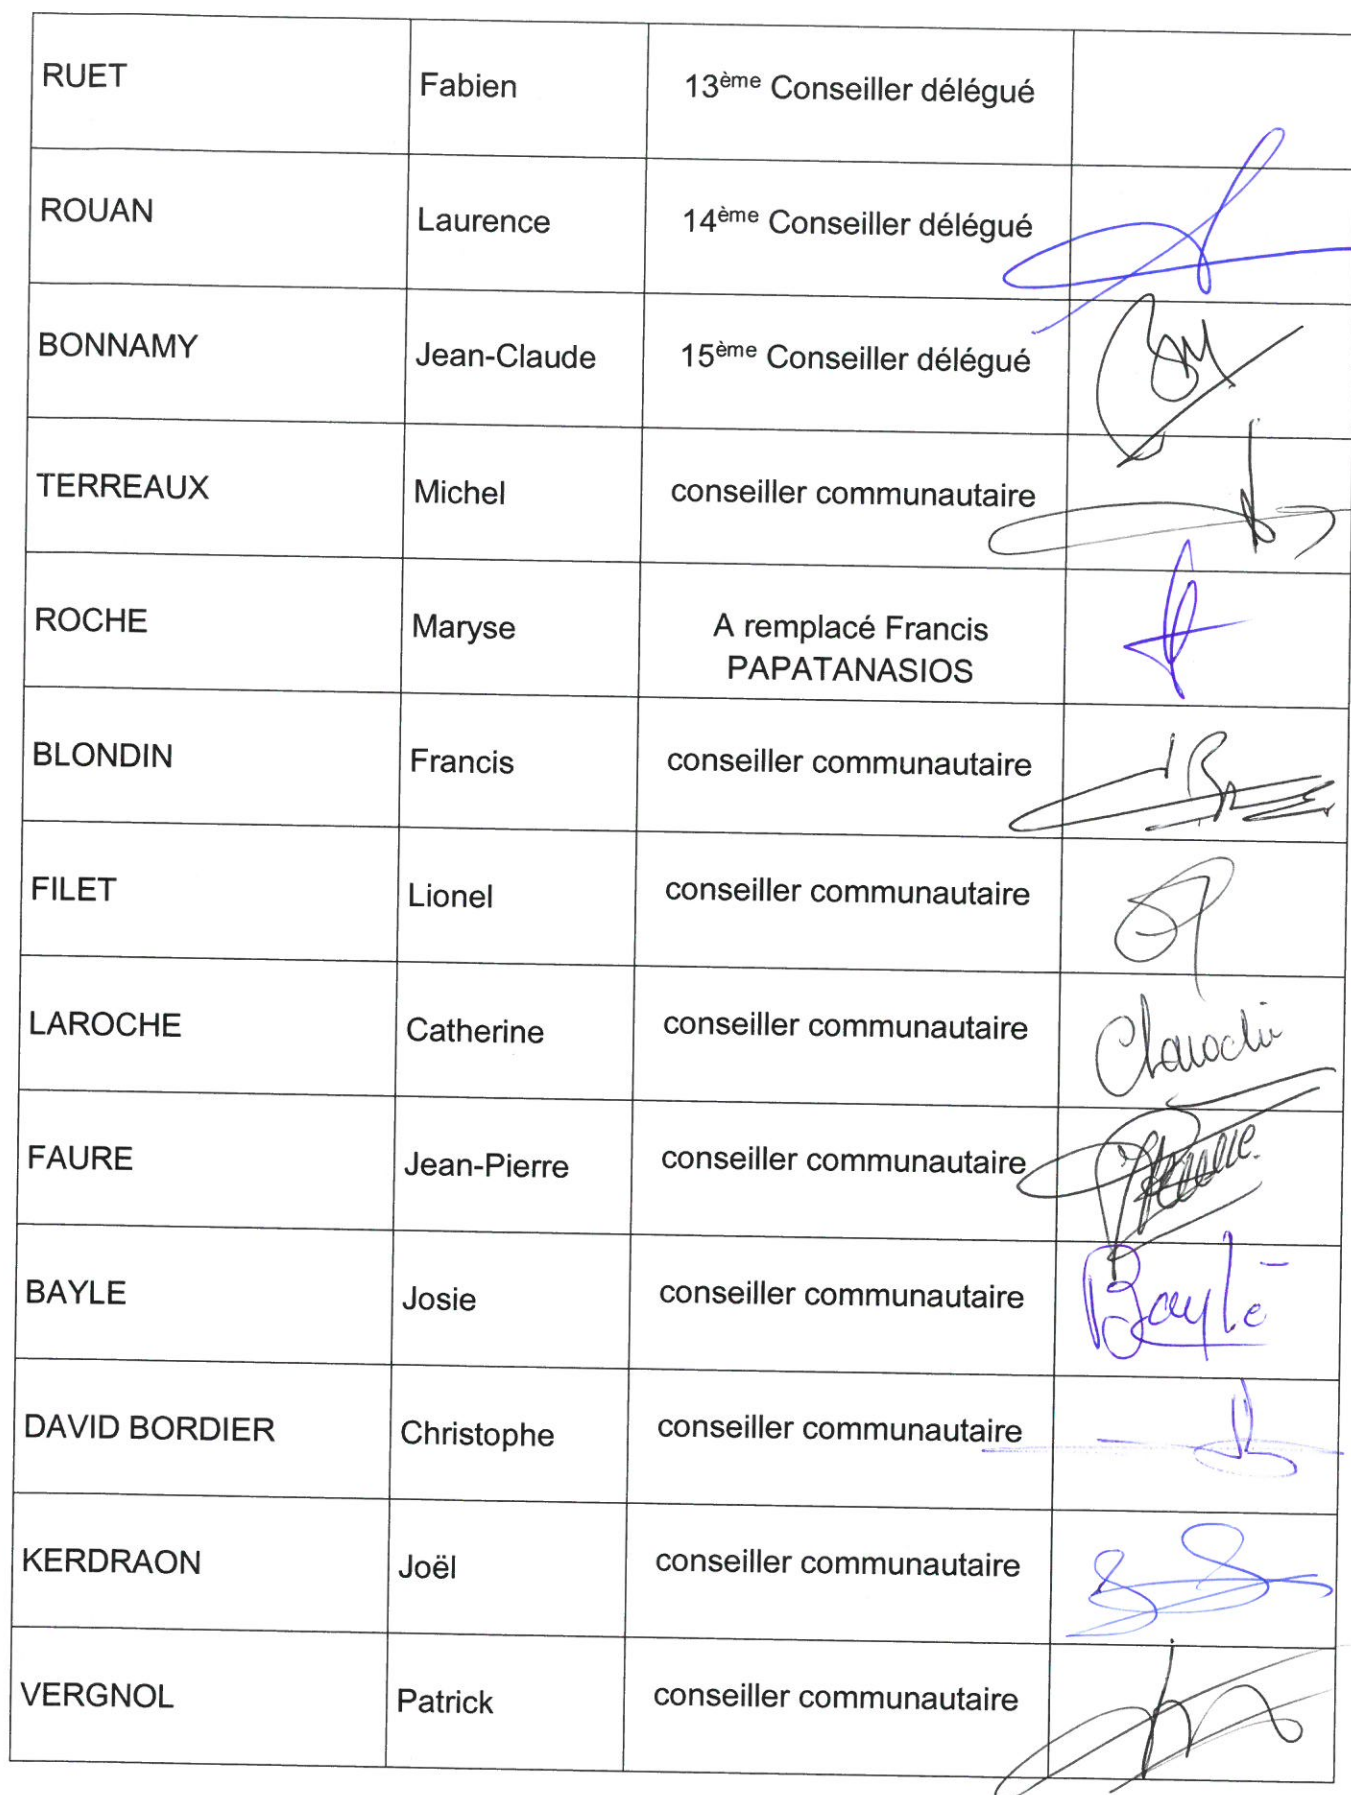 RUET Fabien 13ème Conseiller délégué
ROUAN Laurence 14ème Conseiller délégué
BONNAMY Jean-Claude 15ème Conseiller délégué
TERREAUX Michel conseiller communautaire
ROCHE Maryse A remplacé Francis
PAPATANASIOS
BLONDIN Francis conseiller communautaire
FILET Lionel conseiller communautaire
LAROCHE Catherine conseiller communautaire
FAURE Jean-Pierre conseiller communautaire
BAYLE Josie conseiller communautaire Bayle
DAVID BORDIER Christophe conseiller communautaire
KERDRAON Joël conseiller communautaire
VERGNOL Patrick conseiller communautaire